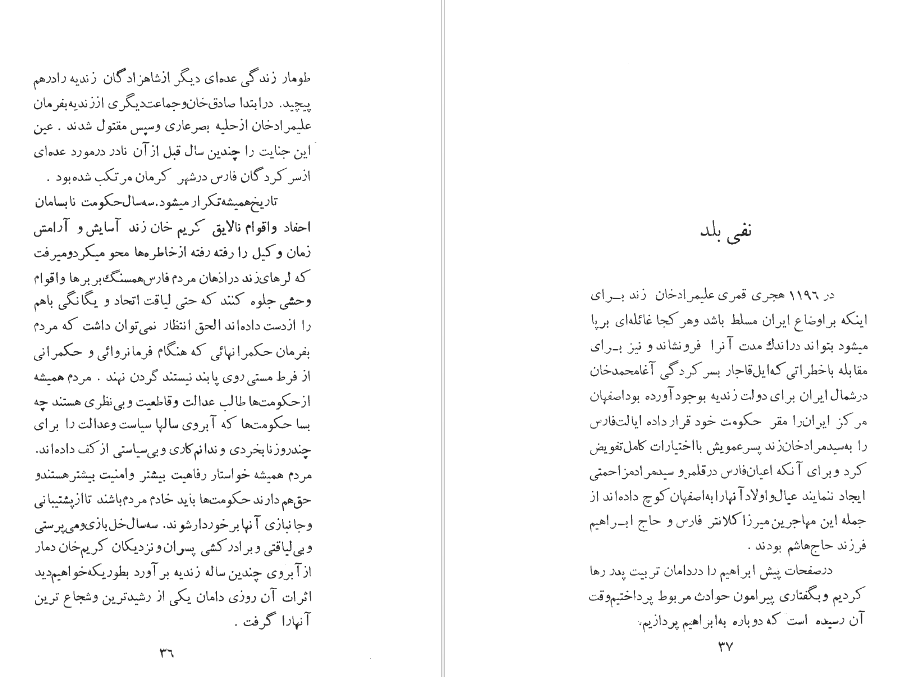 طومار زندگی عده‌ای دیگر ازشاهزادگان زندیه رادرهم
پیچید. درابتدا صادق‌خان‌وجماعت‌دیگری اززندیه‌بفرمان
علیمرادخان ازحلیه بصرعاری وسپس مقتول شدند . عین
این جنایت را چندین سال قبل ازآن نادر درمورد عده‌ای
ازسرکردگان فارس درشهر کرمان مرتکب شده‌بود .
تاریخ‌همیشه‌تکرار میشود.سه‌سال‌حکومت نابسامان
احفاد واقوام نالایق کریم خان زند آسایش و آرامش
زمان وکیل را رفته رفته ازخاطره‌ها محو میکردومیرفت
که لرهای‌زند دراذهان مردم فارس‌همسنگ‌بربرها واقوام
وحشی جلوه کنند که حتی لیاقت اتحاد و یگانگی باهم
را ازدست داده‌اند الحق انتظار نمی‌توان داشت که مردم
بفرمان حکمرانهائی که هنگام فرمانروائی و حکمرانی
از فرط مستی روی پابند نیستند گردن نهند . مردم همیشه
ازحکومت‌ها طالب عدالت وقاطعیت وبی‌نظری هستند چه
بسا حکومت‌ها که آبروی سالها سیاست وعدالت را برای
چندروزنابخردی و ندانم‌کاری وبی‌سیاستی ازکف داده‌اند.
مردم همیشه خواستار رفاهیت بیشتر وامنیت بیشترهستندو
حق‌هم‌دارند حکومت‌ها باید خادم مردم‌باشند تاازپشتیبانی
وجانبازی آنهابرخوردارشوند. سه‌سال‌خل‌بازی‌ومی‌پرستی
وبی‌لیاقتی وبرادرکشی پسران‌ونزدیکان کریم‌خان دمار
ازآبروی چندین ساله زندیه برآورد بطوریکه‌خواهیم‌دید
اثرات آن روزی دامان یکی از رشیدترین وشجاع ترین
آنهارا گرفت .
۳٦
نفی بلد
در ۱۱۹٦ هجری قمری علیمرادخان زند بــرای
اینکه براوضاع ایران مسلط باشد وهرکجا غائله‌ای برپا
میشود بتواند دراندك مدت آنرا فرونشاند و نیز بــرای
مقابله باخطراتی‌که‌ایل‌قاجار بسرکردگی آغامحمدخان
درشمال ایران برای دولت زندیه بوجودآورده بوداصفهان
مرکز ایران‌را مقر حکومت خود قرارداده ایالت‌فارس
را به‌سیدمرادخان‌زند پسرعمویش بااختیارات کامل‌تفویض
کرد وبرای آنکه اعیان‌فارس درقلمرو سیدمرادمزاحمتی
ایجاد ننمایند عیال‌واولادآنهارابه‌اصفهان کوچ داده‌اند از
جمله این مهاجرین‌میرزاکلانتر فارس و حاج ابــراهیم
فرزند حاج‌هاشم بودند .
درصفحات پیش ابراهیم را دردامان تربیت پدر رها
کردیم وبگفتاری پیرامون حوادث مربوط پرداختیم‌وقت
آن رسیده است که دوباره به‌ابراهیم پردازیم.
۳۷